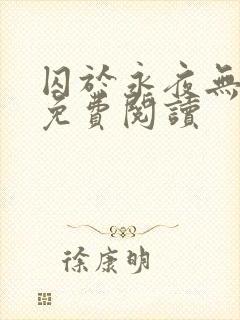 囚於永夜無
免費閱讀
徐康明